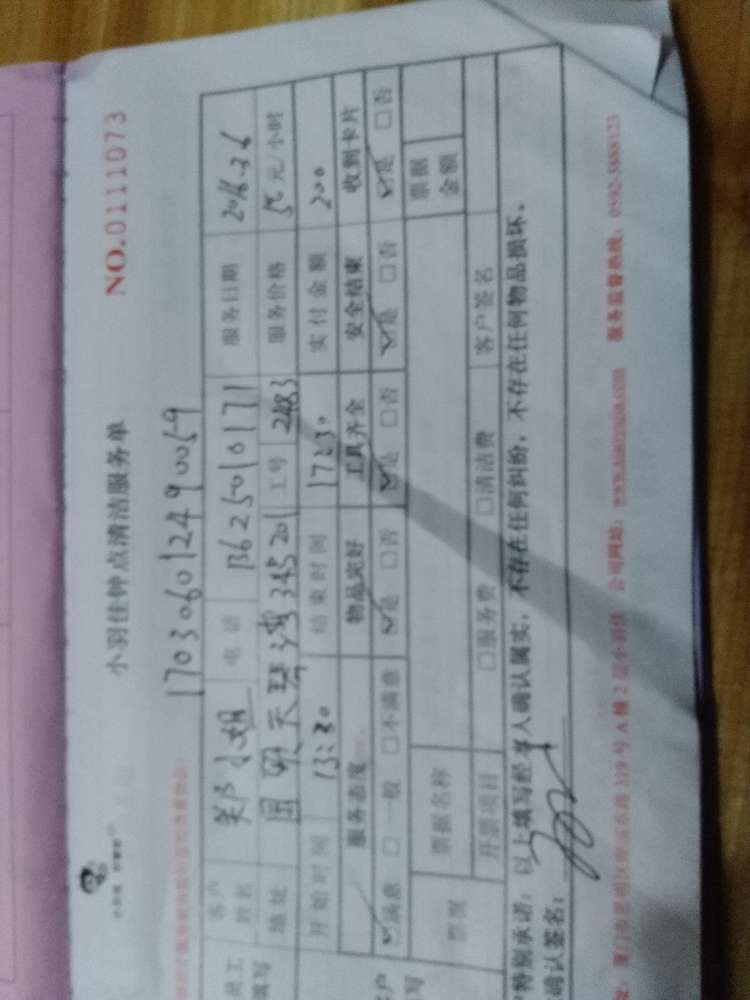 小羽佳钟点清洁服务单 NO.0111073
170306012490059
客户姓名 郑小姐 电话 13625010171 服务日期
地址 345201 工号 2483 服务价格 50元/小时
开始时间 13:30 结束时间 17:30 实付金额 200
服务态度 物品完好 工具齐全 安全结束 收到卡片
☑满意 □一般 □不满意 ☑是 □否 ☑是 □否 ☑是 □否 ☑是 □否
票据 票据名称 票据金额
开票项目 □服务费 □清洁费 客户签名
特别承诺：以上填写经本人确认属实，不存在任何纠纷，不存在任何物品损坏。
确认签名：
319号A幢2层小羽佳 公司网站： 服务监督热线：0592-5888123